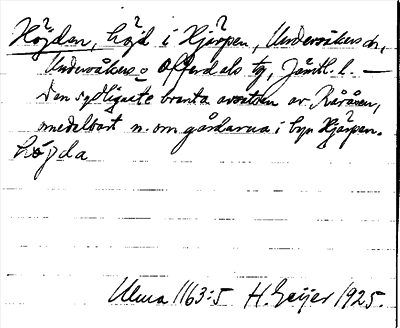 Höjden, höjd i Hjärpen, Undersåkers sn,
Undersåkers o Offerdals tg, Jämtl. l. —
Den sydligaste branta avsatsen av Kåråsen,
omedelbart n. om gårdarna i byn Hjärpen.
höjda
Ulma 1163:5 H. Geijer 1925.